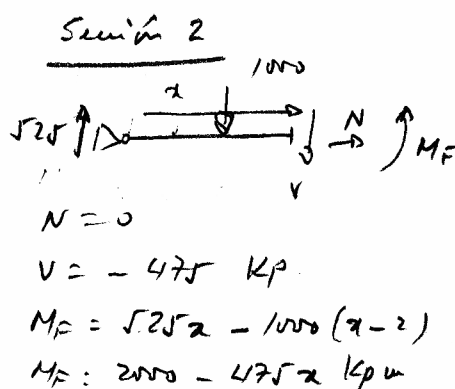 Sección 2
1000
x
525
N
MF
V
N = 0
V = - 475 Kp
MF = 525x - 1000 (x-2)
MF: 2000 - 475x Kpm